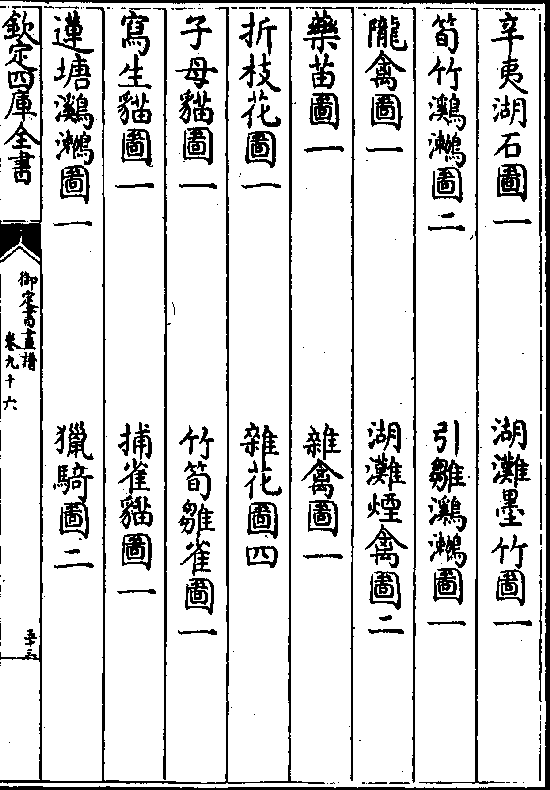 辛夷湖石圖一　湖灘墨竹圖一
筍竹鸂鶒圖二　引雛鸂鶒圖一
隴禽圖一　湖灘煙禽圖二
藥苗圖一　雜禽圖一
折枝花圖一　雜花圖四
子母貓圖一　竹筍雛雀圖一
寫生貓圖一　捕雀貓圖一
蓮塘鸂鶒圖一　獵騎圖二
欽定四庫全書
御定書畫譜
卷九十六